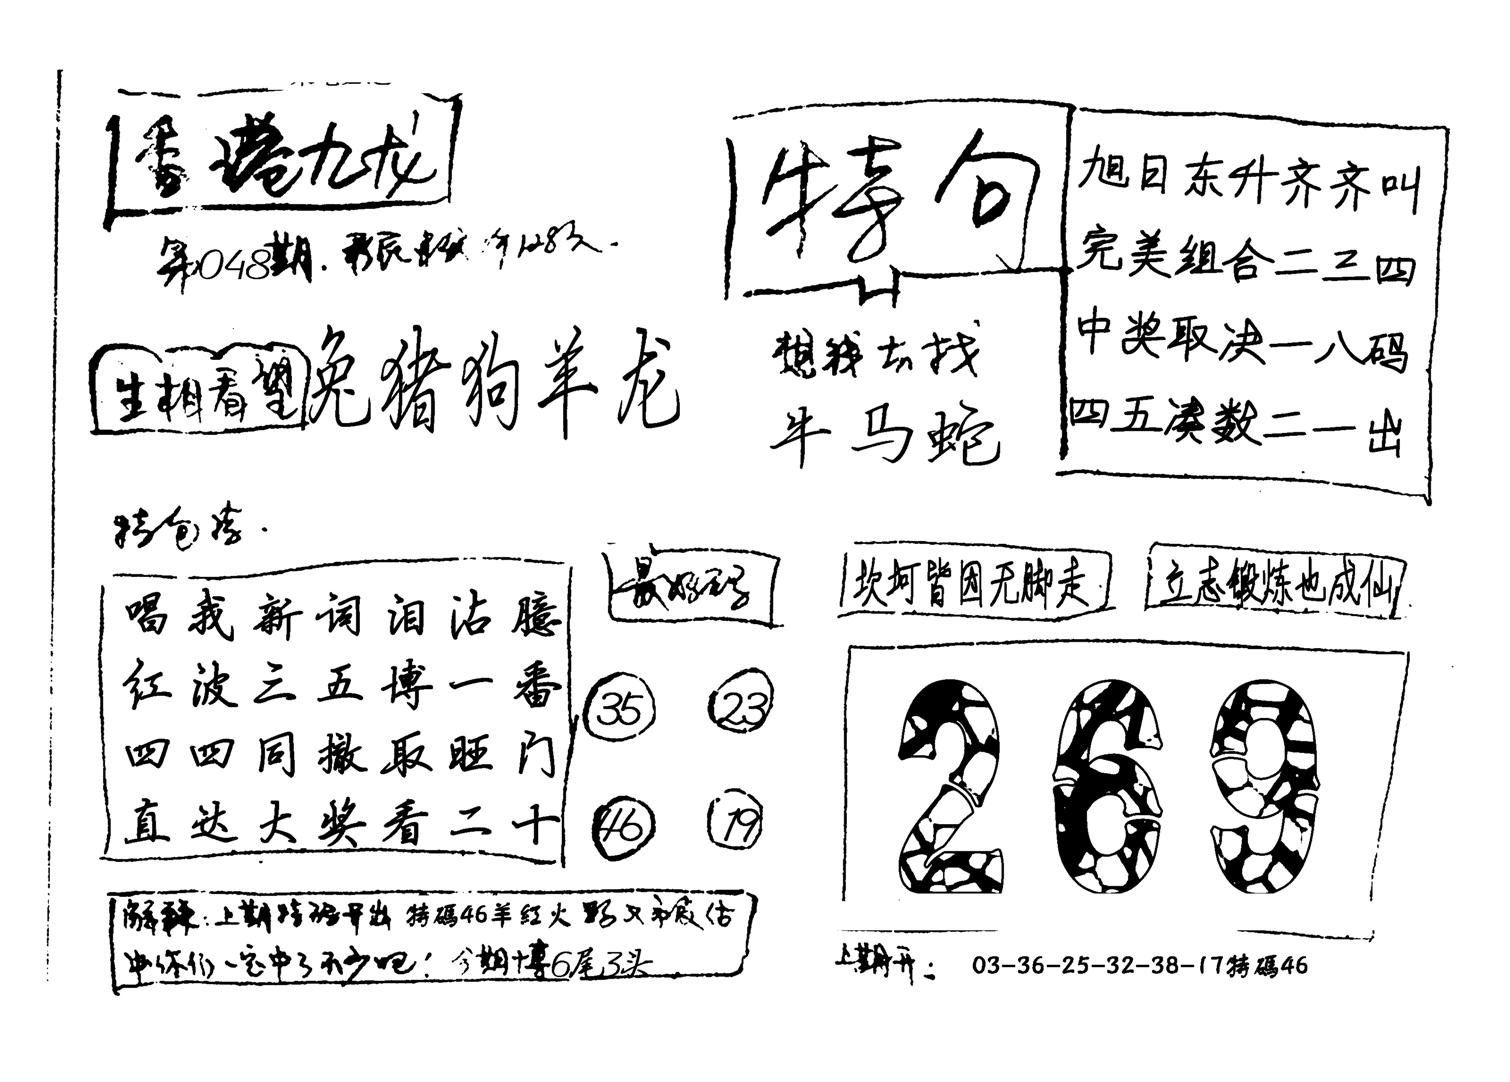 香港九龙
第048期.
生相看望 兔猪狗羊龙
特句
想钱去找
牛马蛇
旭日东升齐齐叫
完美组合二三四
中奖取决一八码
四五凑数二一出
唱我新词泪沾臆
红波三五博一番
四四同撤取旺门
直达大奖看二十
最好码
35 23
46 19
坎坷皆因无脚走
立志锻炼也成仙
269
上期特码开出 特碼46羊红火
一定中了不少吧！今期博6尾3头
上期开：03-36-25-32-38-17特碼46